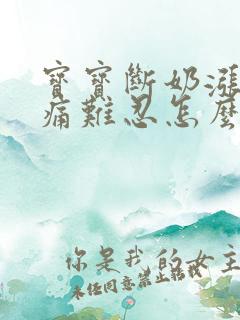 寶寶斷奶漲
痛難忍怎麼
你是我的女主
未經同意禁止轉載